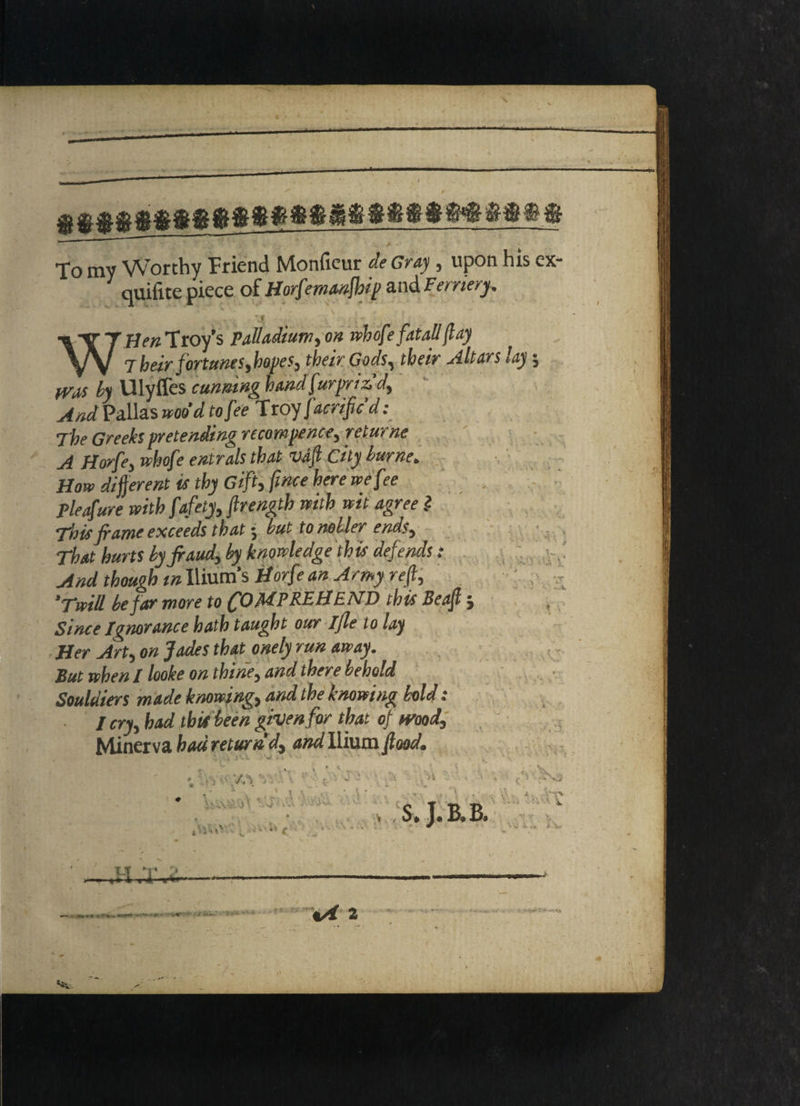 To my Worthy Friend Monſieur de Gray, upon his ex-
quiſite piece of Horſemanſhip and Ferriery.
WHen Troy's Palladium, on whoſe fatall ſtay
Their fortunes, hopes, their Gods, their Altars lay;
Was by Ulyſſes cunning hand ſurpriz'd,
And Pallas woo'd to ſee Troy ſacrific'd:
The Greeks pretending recompence, returne
A Horſe, whoſe entrals that vaſt City burne.
How different is thy Gift, ſince here we ſee
Pleaſure with ſafety, ſtrength with wit agree?
This frame exceeds that; but to nobler ends,
That hurts by fraud, by knowledge this defends:
And though in Ilium's Horſe an Army reſt,
'Twill be far more to COMPREHEND this Beaſt;
Since Ignorance hath taught our Iſle to lay
Her Art, on Jades that onely run away.
But when I looke on thine, and there behold
Souldiers made knowing, and the knowing bold:
I cry, had this been given for that of Wood,
Minerva had return'd, and Ilium ſtood.
S. J. B. B.
A 2